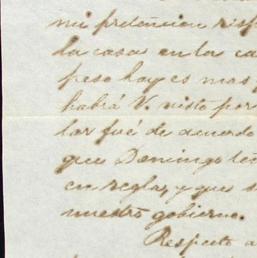 mi pretencion resp
da casa en la ca
pero hoy es mas
habrá V. visto por
lar fué de acuerdo
que Domingo
en reglas, y que s
nuestro gobierno.
Respecto a